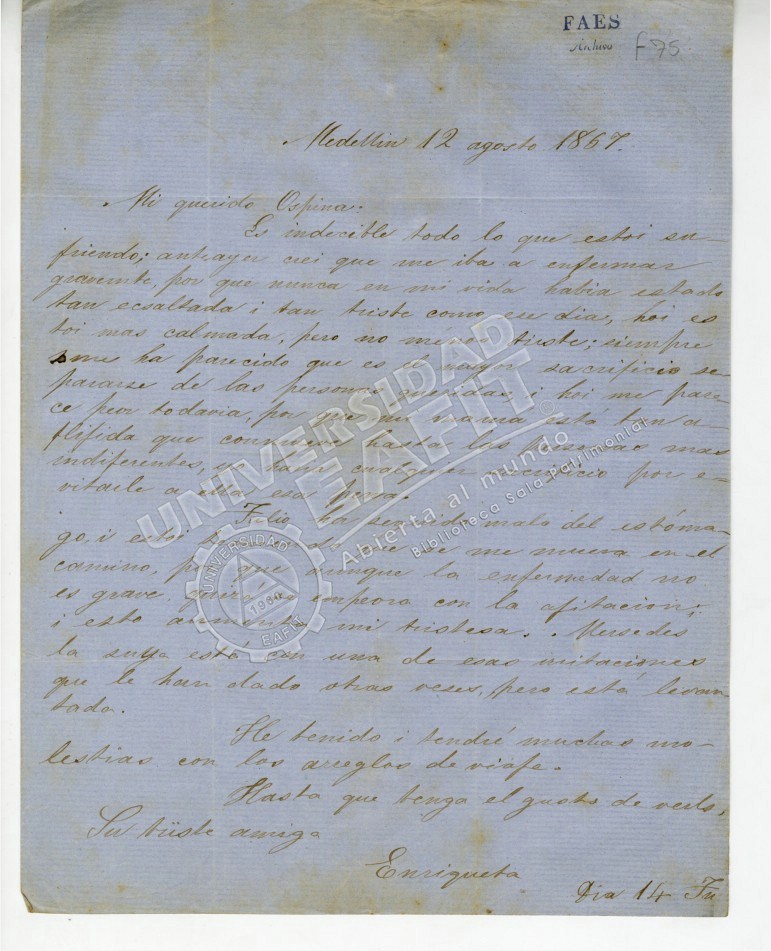 FAES
Archivo f 75
Medellin 12 agosto 1867.
Mi querido Ospina:
Es indecible todo lo que estoi su-
friendo; anteayer crei que me iba a enfermar
gravemte, por que nunca en mi vida habia estado
tan ecsaltada i tan triste como ese dia, hoi es
toi mas calmada, pero no ménos triste; siempre
me ha parecido que es el mayor sacrificio se-
pararse de las personas queridas, i hoi me pare-
ce peor todavia, por que mi mamá está tan a-
flijida que conmueve hasta las personas mas
indiferentes, yo haria cualquier sacrificio por e-
vitarle a ella esa pena.
Felio ha seguido malo del estóma-
go, i estoi que se me muera en el
camino, por que aunque la enfermedad no
es grave se empeora con la ajitacion;
i esto aumenta mi tristesa. Mersedes
la suya está con una de esas irritaciones
que le han dado otras veses, pero está levan-
tada.
He tenido i tendré muchas mo-
lestias con los arreglos de viaje.
Hasta que tenga el gusto de verlo,
Su triste amiga
Enriqueta
Dia 14 Fu
UNIVERSIDAD
EAFIT
Abierta al mundo
Biblioteca Sala Patrimonial
UNIVERSIDAD
1960
EAFIT